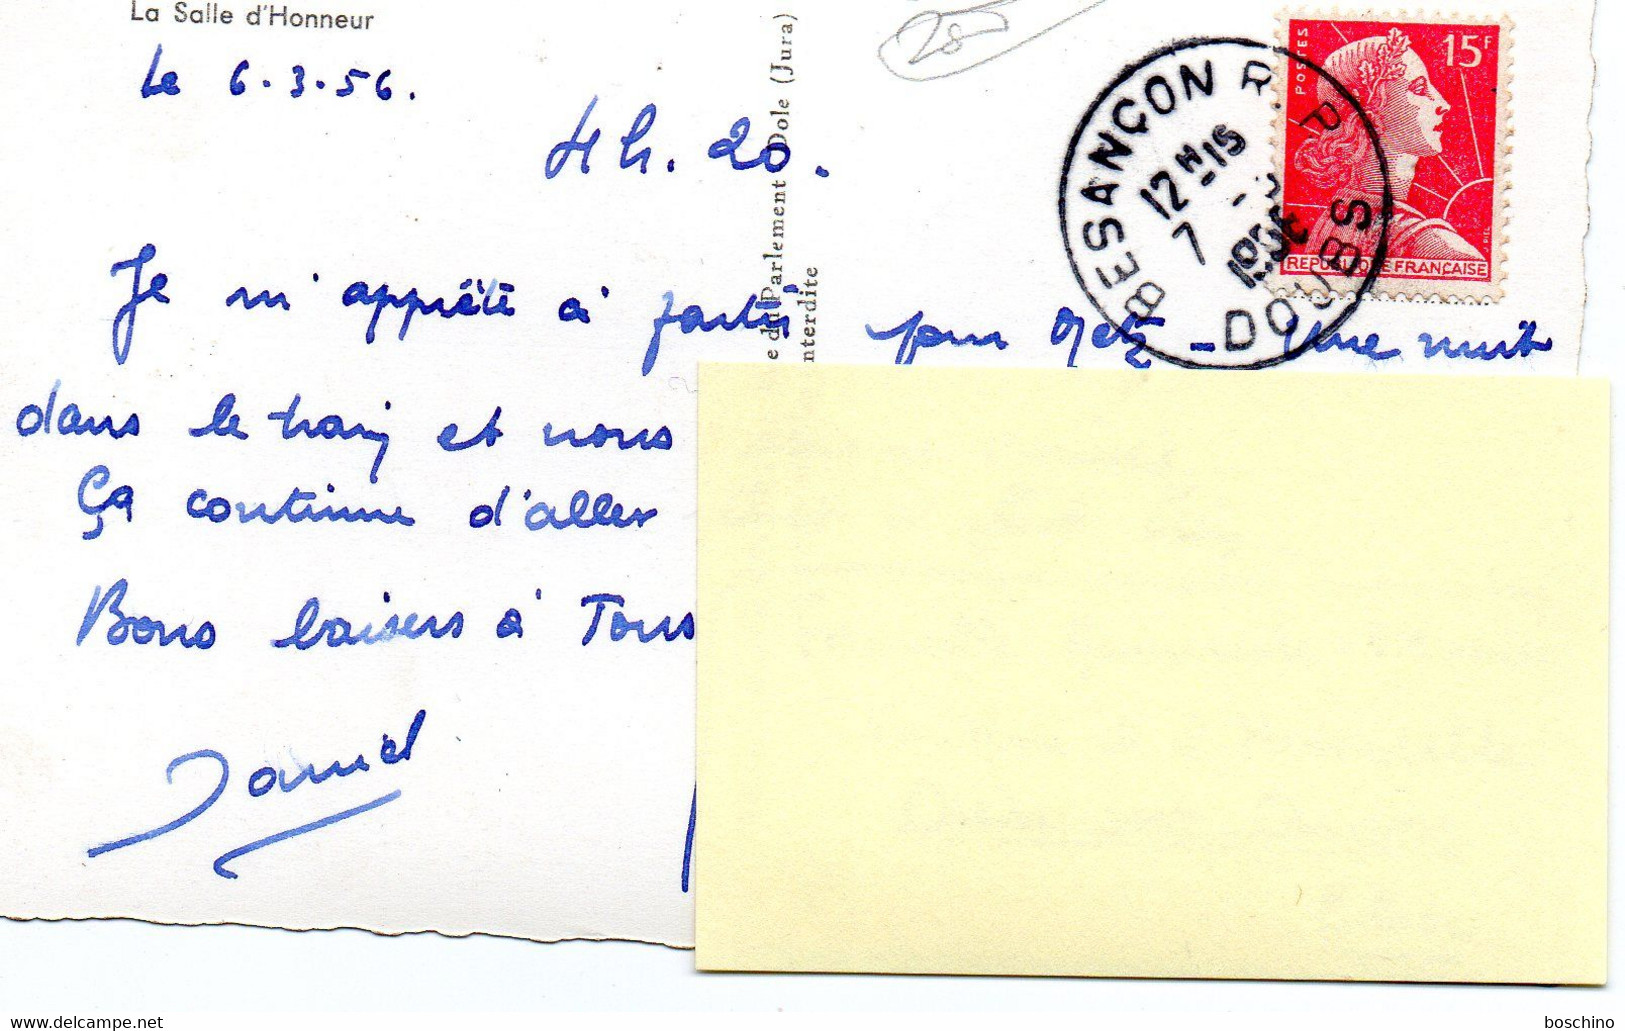 La Salle d'Honneur
Le 6.3.56.
4h.20.
Je m'apprête à partir pour Metz - Une nuit
dans le train et nous
Ça continue d'aller
Bons baisers à Tous
Daniel
du Parlement Dole (Jura)
interdite
25
BESANÇON R. P.
DOUBS
12H15
7
1956
POSTES
15F
REPUBLIQUE FRANÇAISE
boschino